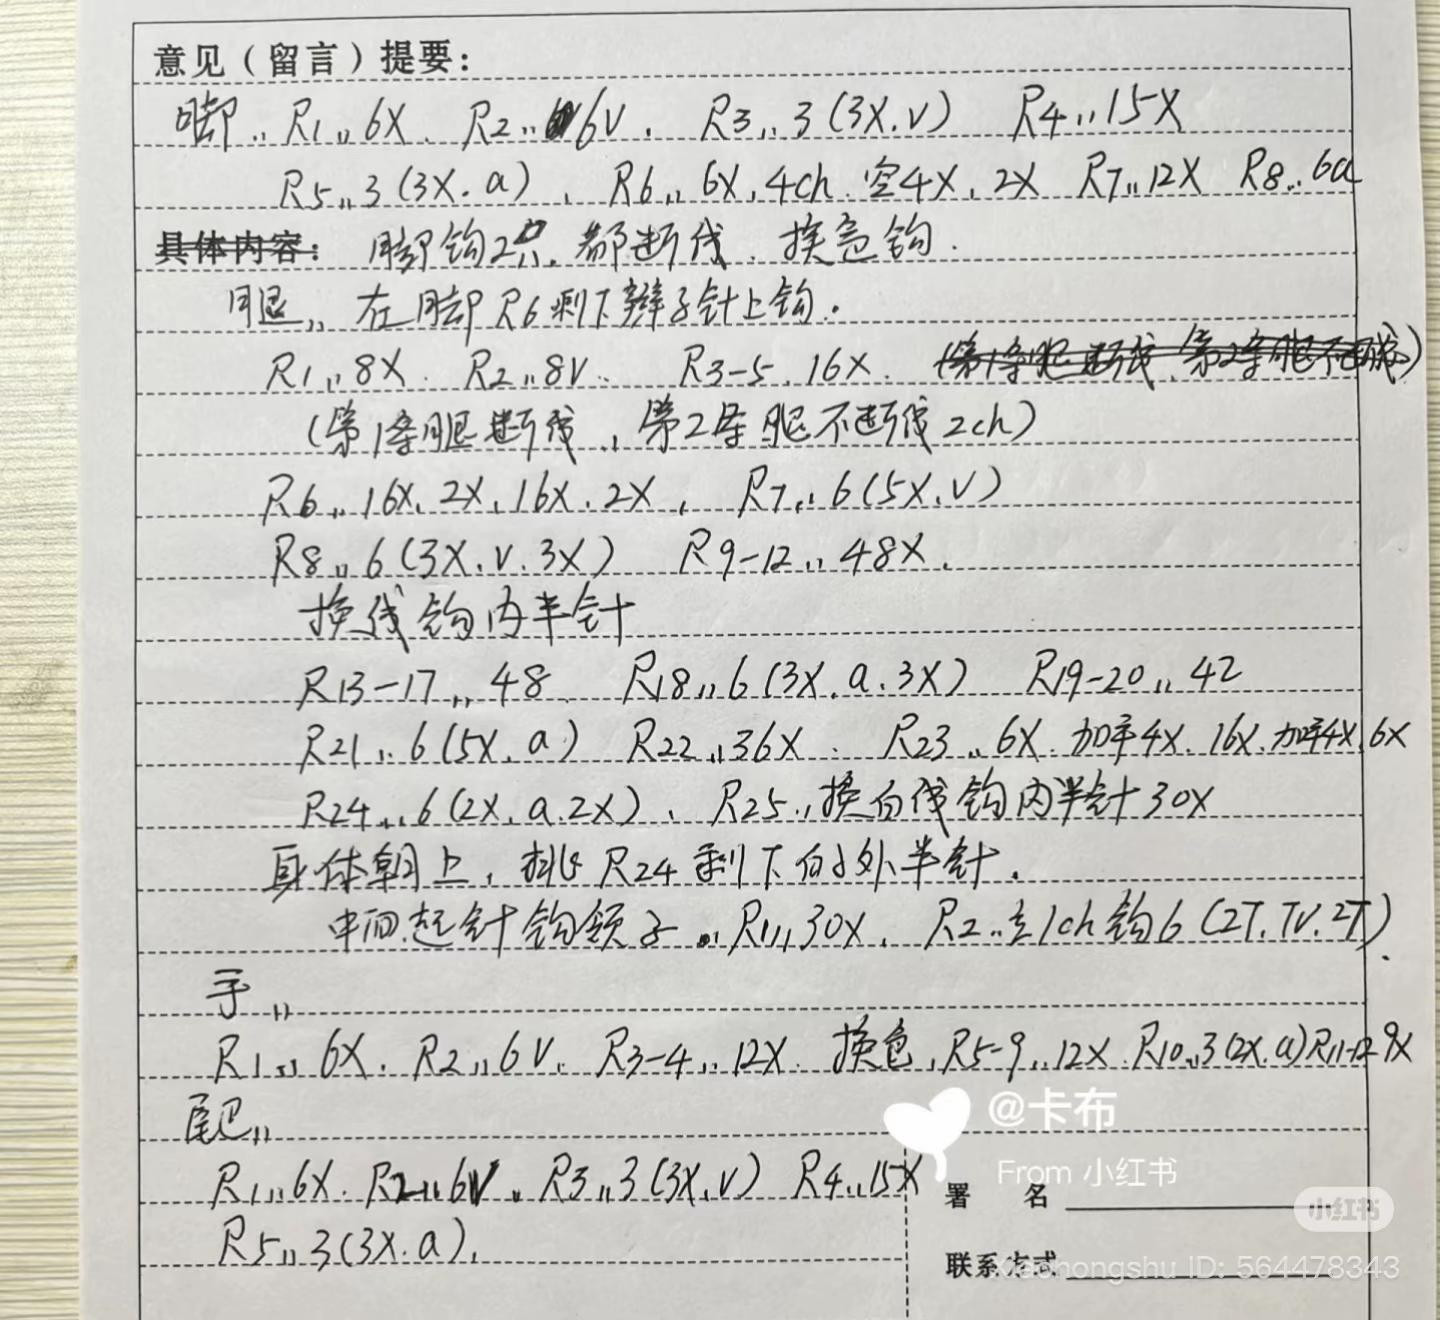 意见（留言）提要：
脚,, R1,, 6X. R2,, 6V. R3,, 3(3X.V) R4,, 15X
R5,, 3(3X.a). R6,, 6X, 4ch. 空4X, 2X R7,, 12X R8,, 6a
具体内容： 脚钩2只. 都断线. 换色钩.
腿,, 在脚R6剩下辫子针上钩.
R1,, 8X. R2,, 8V. R3-5. 16X. (第1条腿断线. 第2条腿不断线)
(第1条腿断线, 第2条腿不断线2ch)
R6,, 16X. 2X. 16X. 2X, R7,, 6(5X.V)
R8,, 6(3X.V.3X) R9-12,, 48X.
换线钩内半针
R13-17,, 48 R18,, 6(3X.a.3X) R19-20,, 42
R21,, 6(5X.a) R22,, 36X. R23,, 6X. 加手4X. 16X. 加手4X. 6X
R24,, 6(2X.a.2X). R25,, 换白线钩内半针30X
身体朝上, R24剩下的外半针.
中间起针钩领子. R1,, 30X. R2,, 立1ch钩6(2T.TV.2T).
手,,
R1,, 6X. R2,, 6V. R3-4,, 12X. 换色, R5-9,, 12X. R10,, 3(2X.a) R11-12 9X
尾巴,,
@卡布
From 小红书
R1,, 6X. R2,, 6V. R3,, 3(3X.V) R4,, 15X
署 名
小红书
R5,, 3(3X.a).
联系方式
Xiaohongshu ID: 564478343